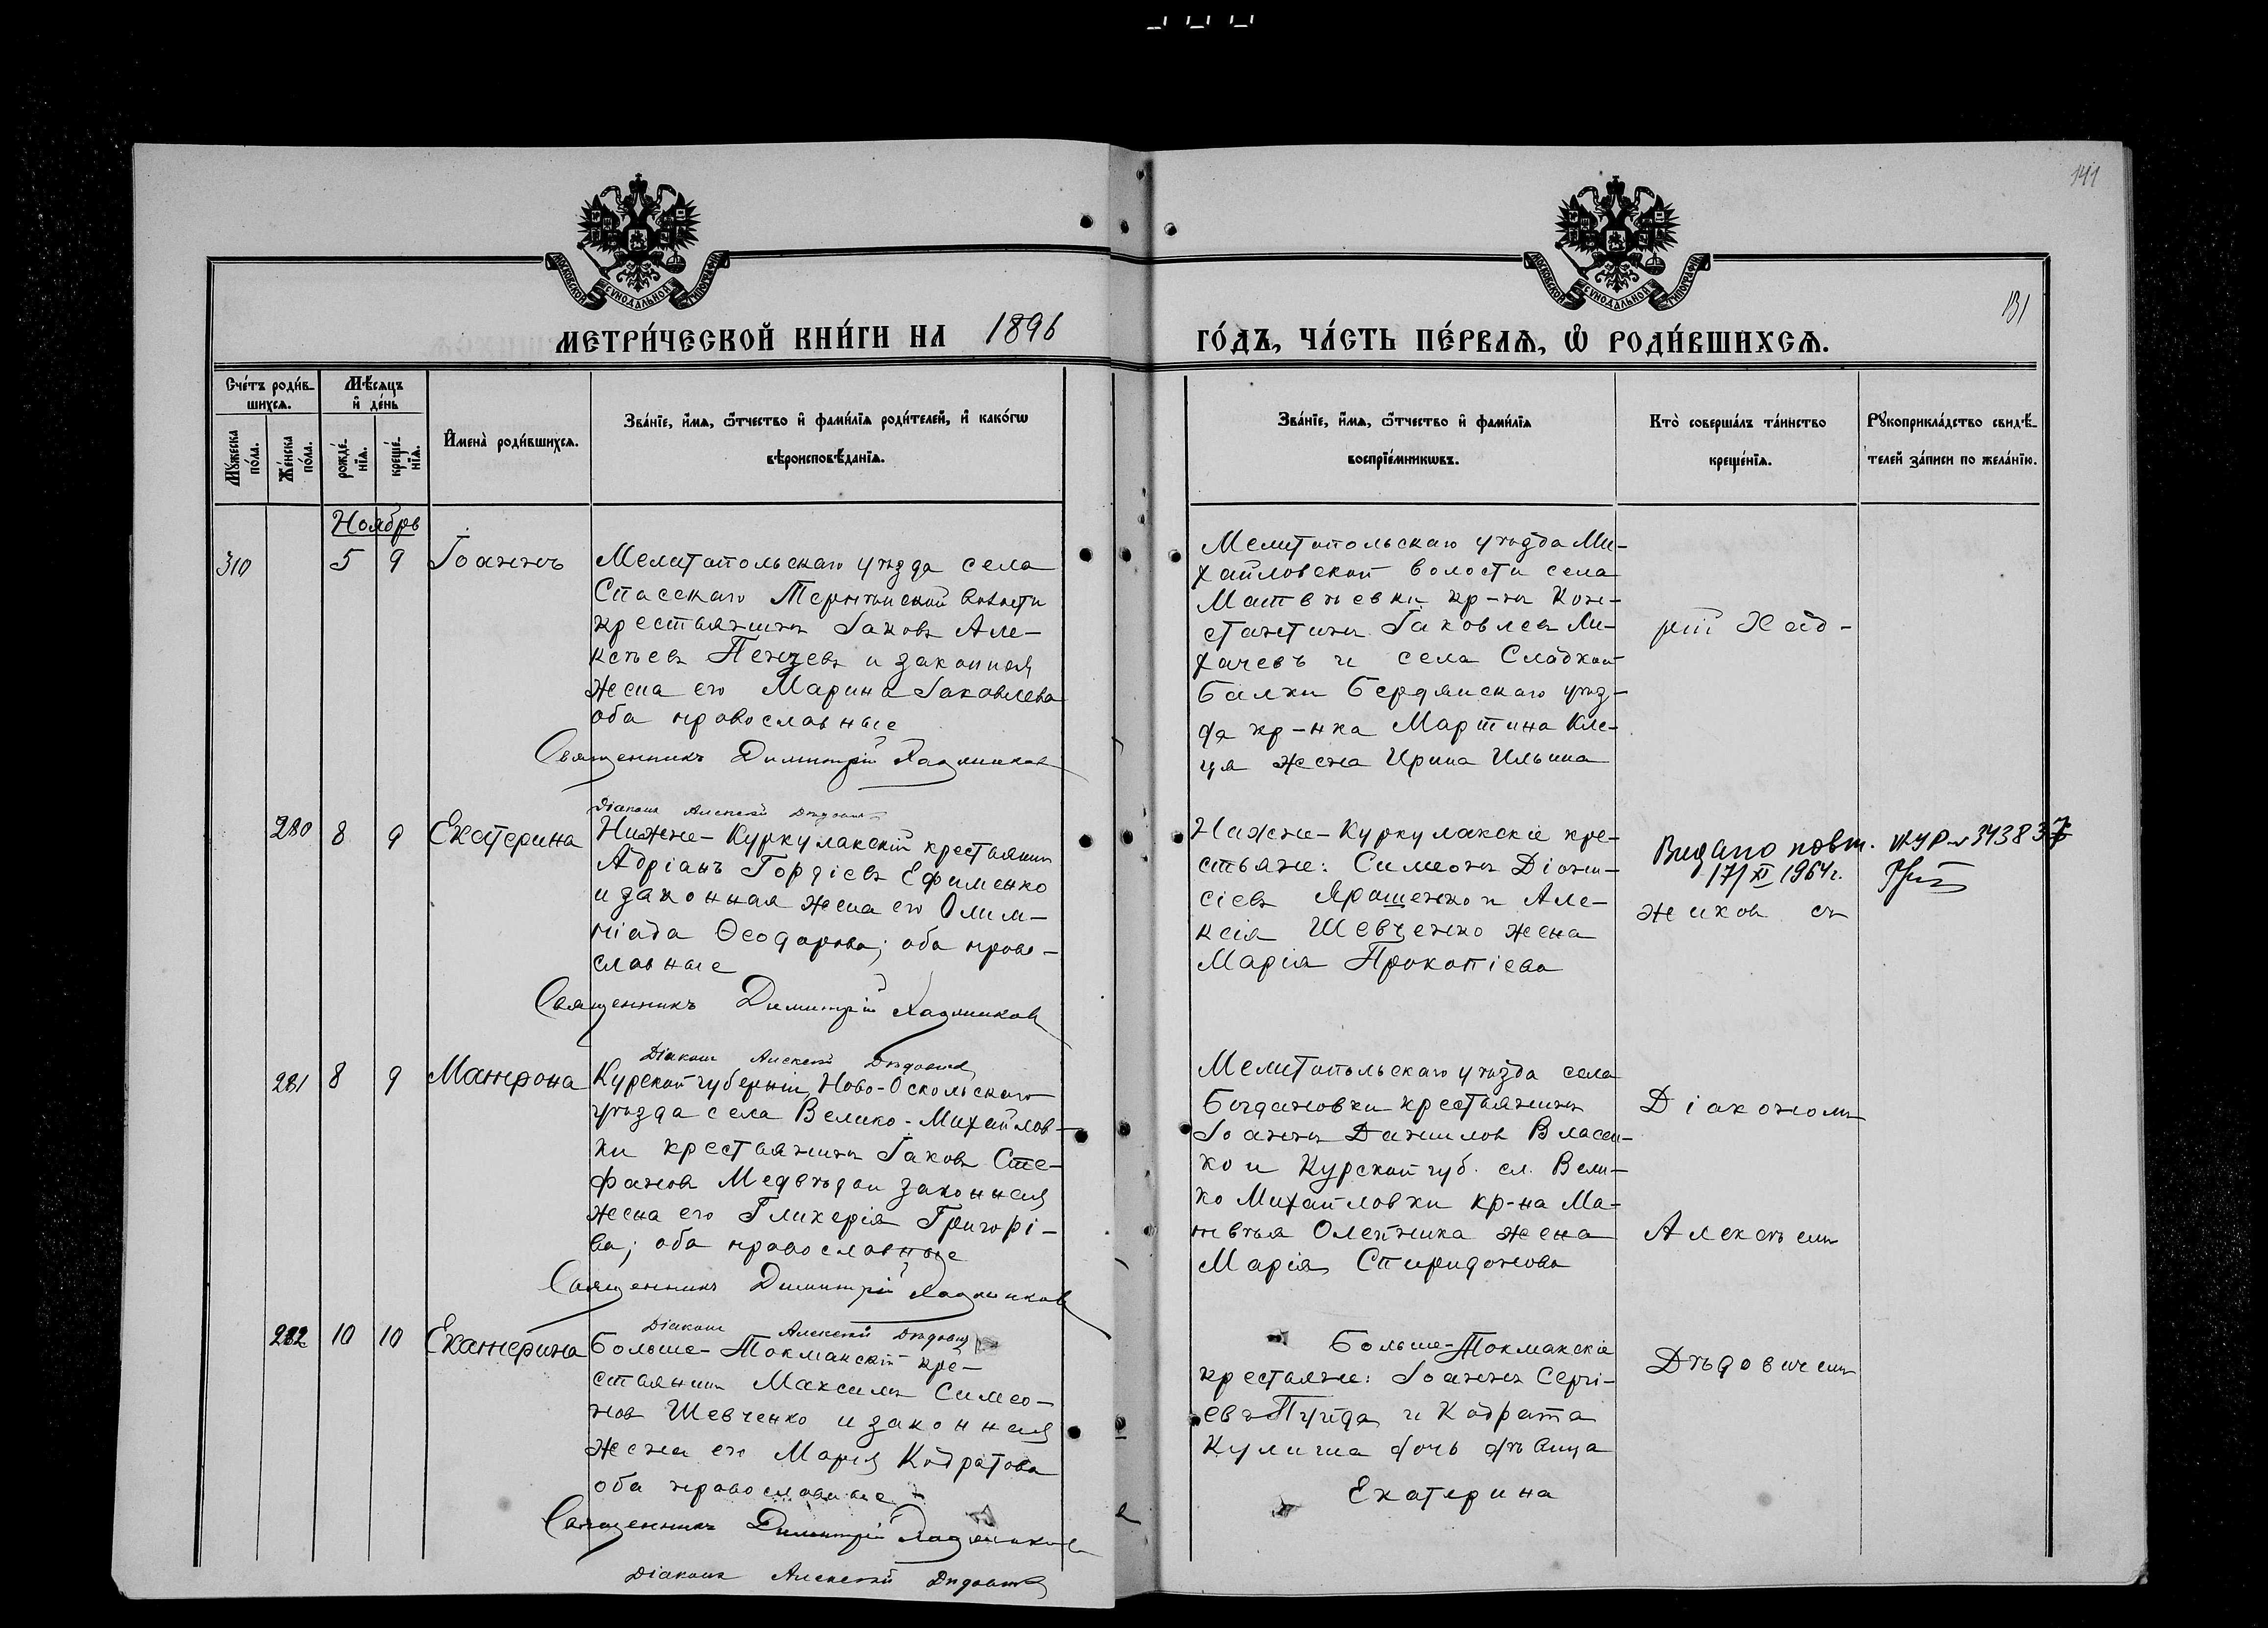 141
МОСКОВСКОЙ СѴНОДАЛЬНОЙ ТИПОГРАФІИ
МОСКОВСКОЙ СѴНОДАЛЬНОЙ ТИПОГРАФІИ
131
МЕТРИ́ЧЕСКОЙ КНИ́ГИ НА 1896
ГО́ДЪ, ЧА́СТЬ ПЕ́РВАѦ, Ѡ РОДИ́ВШИХСѦ.
Сче́тъ роди́в-
шихсѧ.
Мꙋжеска по́ла.
Же́нска по́ла.
Мѣ́сяцъ
и҆ де́нь
рожде́-
нїѧ.
креще́-
нїѧ.
И҆мена̀ роди́вшихсѧ.
Зва́нїе, и҆́мѧ, ѻ҆́тчество и҆ фами́лїѧ роди́телей, и҆ како́гѡ
вѣроисповѣ́данїѧ.
Зва́нїе, и҆́мѧ, ѻ҆́тчество и҆ фами́лїѧ
воспрїе́мникѡвъ.
Кто̀ соверша́лъ та́инство
креще́нїѧ.
Рꙋкоприкла́дство свидѣ́-
телей за́писи по жела́нїю.
Ноябрь
310 5 9 Іоаннъ
Мелитопольскаго уѣзда села
Спасскаго волости
крестьянинъ Іаковъ Але-
ксѣевъ и законная
жена его Марина Іаковлева
оба православные
Священникъ Димитрій
Діаконъ Алексѣй Дѣдовичъ
Мелитопольскаго уѣзда Ми-
хайловской волости села
Матвѣевки кр-нъ Кон-
стантинъ Іаковлевъ Ли-
хачевъ и села Сладкой
Балки Бердянскаго уѣз-
да кр-нка Мартина Кле-
ця жена Ирина Ильина
рій Хад-
280 8 9 Екатерина
Нижне-Куркулакскій крестьянинъ
Адріанъ Гордіевъ Ефименко
и законная жена его Олим-
піада Ѳеодорова; оба право-
славные
Священникъ Димитрій
Діаконъ Алексѣй Дѣдовичъ
Нижне-Куркулакскіе кре-
стьяне: Симеонъ Діони-
сіевъ Ярошенко и Але-
ксія Шевченко жена
Марія Прокопіева
Видано повт. 343837
17/XI 1964г.
жиковъ съ
281 8 9 Матрона
Курской губерніи, Ново-Оскольскаго
уѣзда села Велико-Михайлов-
ки крестьянинъ Іаковъ Сте-
фановъ Медвѣдев и законная
жена его Гликерія Григорі-
ва; оба православные
Священникъ Димитрій
Діаконъ Алексѣй Дѣдовичъ
Мелитопольскаго уѣзда села
Богдановки крестьянинъ
Іоаннъ Даниловъ Власен-
ко и Курской губ. сл. Вели-
ко Михайловки кр-на Ма-
твѣя Олейника жена
Марія Спиридонова
Діакономъ
Алексѣемъ
282 10 10 Екатерина
Больше-Токмакскій кре-
стьянинъ Максимъ Симео-
новъ Шевченко и законная
жена его Марія Кодратова
оба православные
Священникъ Димитрій
Діаконъ Алексѣй Дѣдовичъ
Больше-Токмакскіе
крестьяне: Іоаннъ Сергі-
евъ и Кодрата
Кулиша дочь дѣвица
Екатерина
Дѣдовичемъ